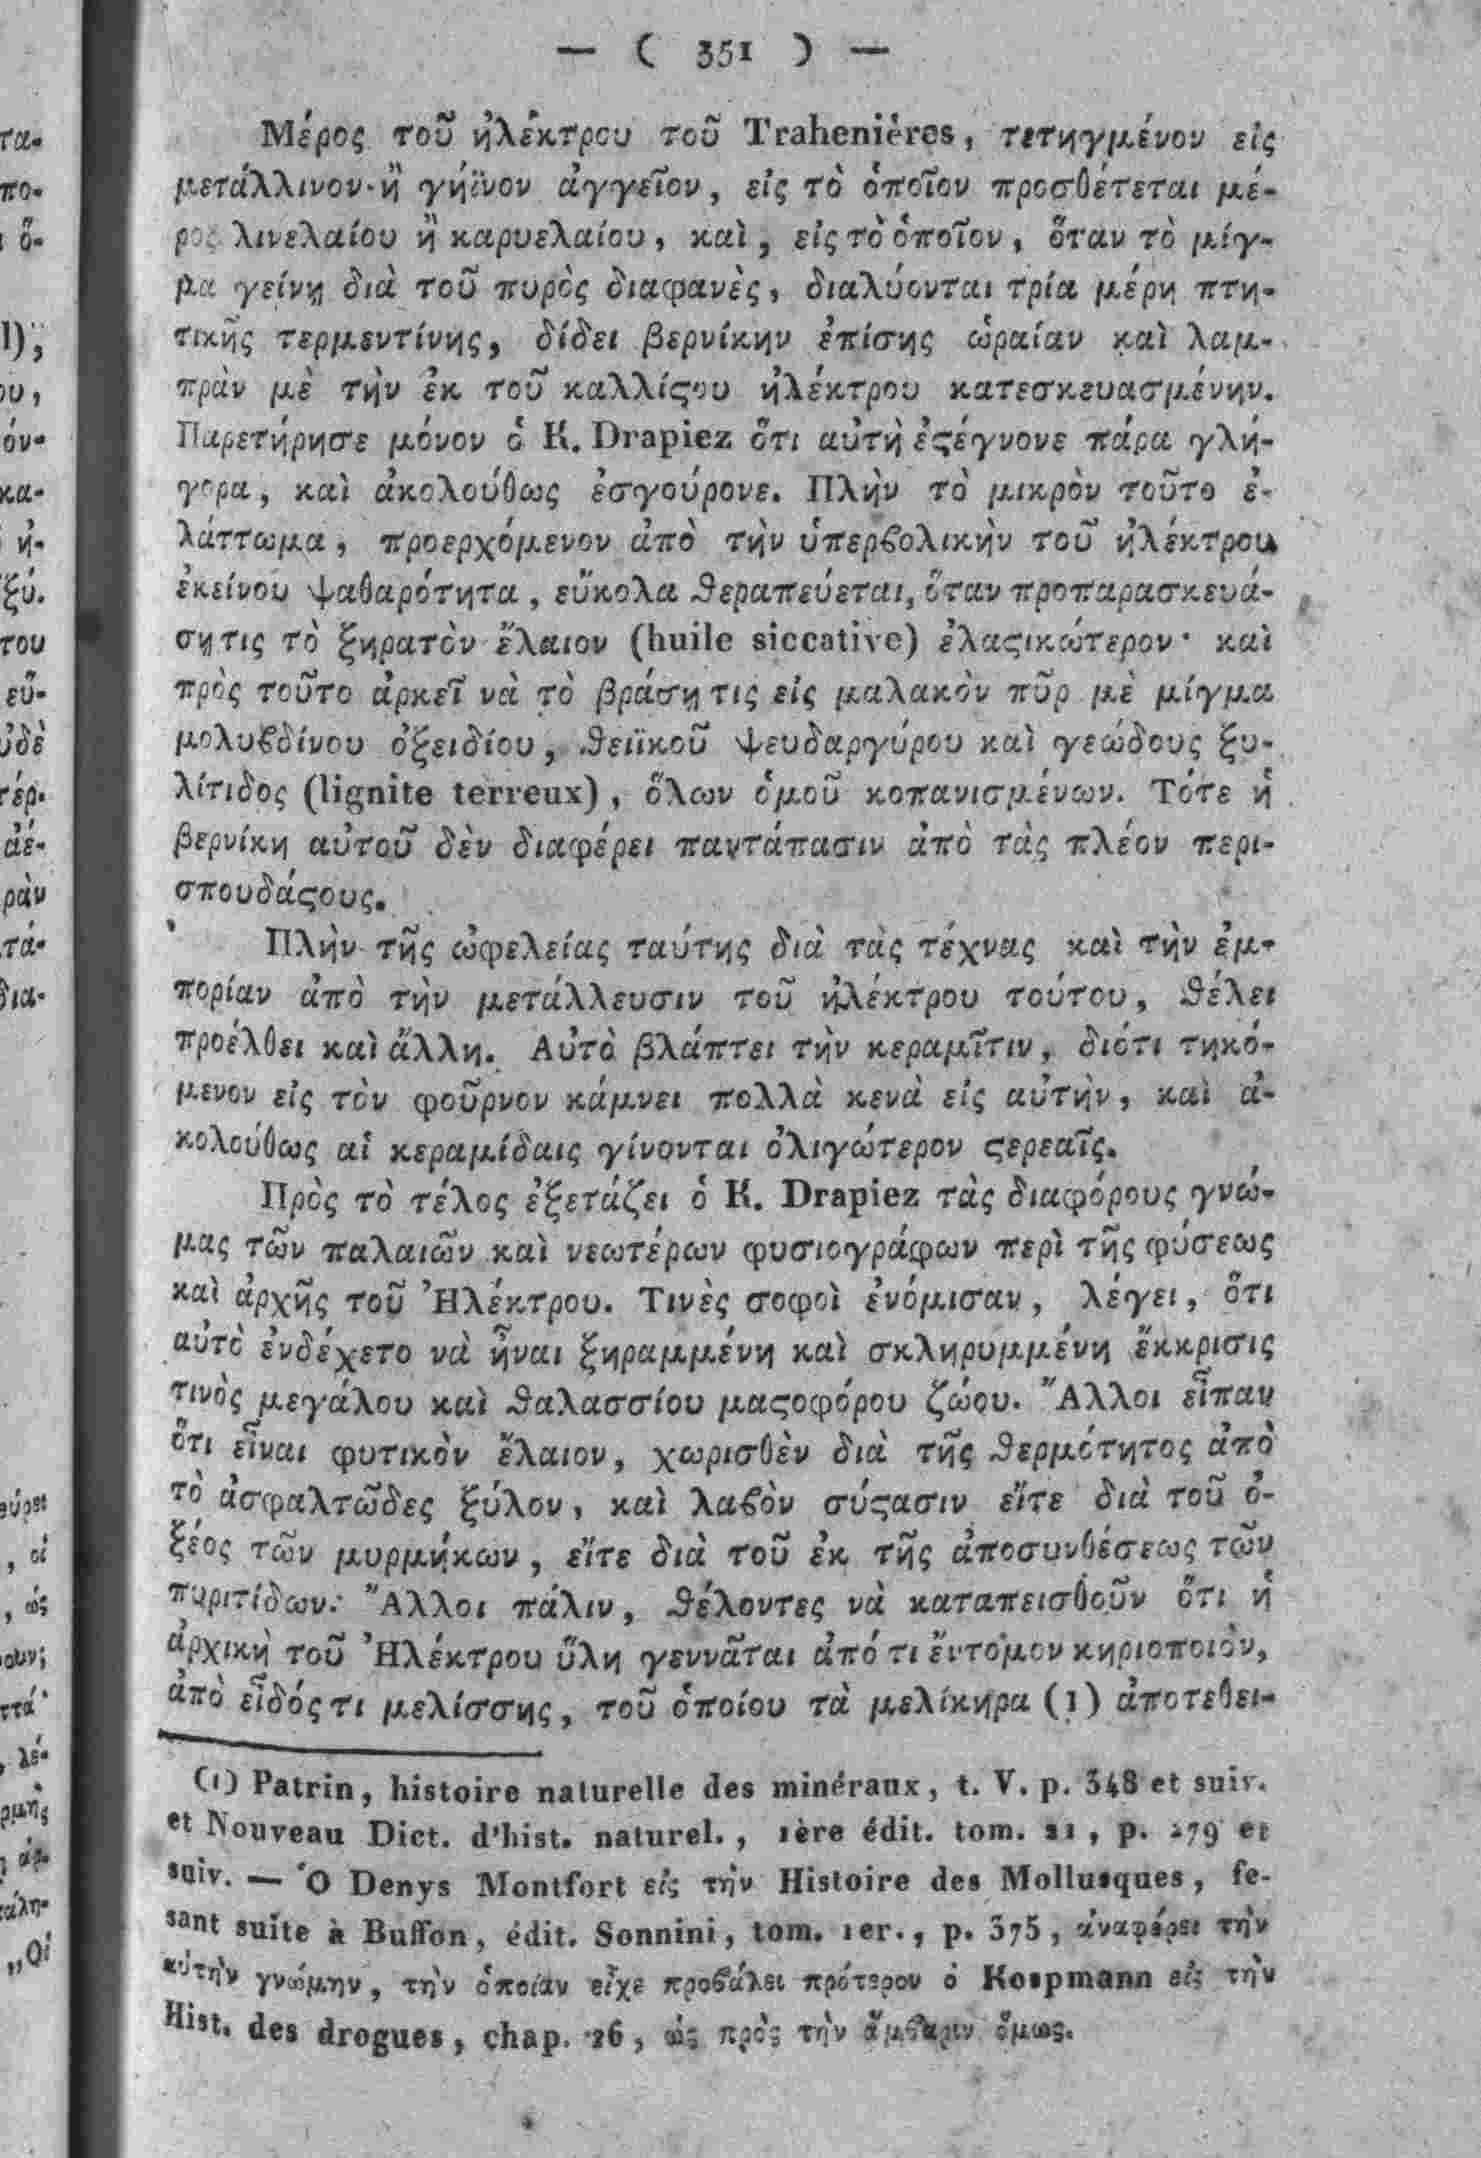 — ( 351 ) —
Μέρος τοῦ ἠλέκτρου τοῦ Trahenières, τετηγμένον εἰς
μετάλλινον ἢ γήϊνον ἀγγεῖον, εἰς τὸ ὁποῖον προσθέτεται μέ-
ρος λινελαίου ἢ καρυελαίου, καὶ, εἰς τὸ ὁποῖον, ὅταν τὸ μίγ-
μα γείνῃ διὰ τοῦ πυρὸς διαφανὲς, διαλύονται τρία μέρη πτη-
τικῆς τερμεντίνης, δίδει βερνίκην ἐπίσης ὡραίαν καὶ λαμ-
πρὰν μὲ τὴν ἐκ τοῦ καλλίϛου ἠλέκτρου κατεσκευασμένην.
Παρετήρησε μόνον ὁ K. Drapiez ὅτι αὐτὴ ἐϛέγνονε πάρα γλή-
γορα, καὶ ἀκολούθως ἐσγούρονε. Πλὴν τὸ μικρὸν τοῦτο ἐ-
λάττωμα, προερχόμενον ἀπὸ τὴν ὑπερβολικὴν τοῦ ἠλέκτρου
ἐκείνου ψαθαρότητα, εὔκολα θεραπεύεται, ὅταν προπαρασκευά-
σῃ τις τὸ ξηρατὸν ἔλαιον (huile siccative) ἐλαϛικώτερον· καὶ
πρὸς τοῦτο ἀρκεῖ νὰ τὸ βράσῃ τις εἰς μαλακὸν πῦρ μὲ μίγμα
μολυβδίνου ὀξειδίου, θειϊκοῦ ψευδαργύρου καὶ γεώδους ξυ-
λίτιδος (lignite terreux), ὅλων ὁμοῦ κοπανισμένων. Τότε ἡ
βερνίκη αὐτοῦ δὲν διαφέρει παντάπασιν ἀπὸ τὰς πλέον περι-
σπουδάϛους.
Πλὴν τῆς ὠφελείας ταύτης διὰ τὰς τέχνας καὶ τὴν ἐμ-
πορίαν ἀπὸ τὴν μετάλλευσιν τοῦ ἠλέκτρου τούτου, θέλει
προέλθει καὶ ἄλλη. Αὐτὸ βλάπτει τὴν κεραμῖτιν, διότι τηκό-
μενον εἰς τὸν φοῦρνον κάμνει πολλὰ κενὰ εἰς αὐτὴν, καὶ ἀ-
κολούθως αἱ κεραμίδαις γίνονται ὀλιγώτερον ϛερεαῖς.
Πρὸς τὸ τέλος ἐξετάζει ὁ K. Drapiez τὰς διαφόρους γνώ-
μας τῶν παλαιῶν καὶ νεωτέρων φυσιογράφων περὶ τῆς φύσεως
καὶ ἀρχῆς τοῦ Ἠλέκτρου. Τινὲς σοφοὶ ἐνόμισαν, λέγει, ὅτι
αὐτὸ ἐνδέχετο νὰ ἦναι ξηραμμένη καὶ σκληρυμμένη ἔκκρισις
τινὸς μεγάλου καὶ θαλασσίου μαϛοφόρου ζώου. Ἄλλοι εἶπαν
ὅτι εἶναι φυτικὸν ἔλαιον, χωρισθὲν διὰ τῆς θερμότητος ἀπὸ
τὸ ἀσφαλτῶδες ξύλον, καὶ λαβὸν σύϛασιν εἴτε διὰ τοῦ ὀ-
ξέος τῶν μυρμήκων, εἴτε διὰ τοῦ ἐκ τῆς ἀποσυνθέσεως τῶν
πυριτίδων. Ἄλλοι πάλιν, θέλοντες νὰ καταπεισθοῦν ὅτι ἡ
ἀρχικὴ τοῦ Ἠλέκτρου ὕλη γεννᾶται ἀπό τι ἔντομον κηριοποιὸν,
ἀπὸ εἶδός τι μελίσσης, τοῦ ὁποίου τὰ μελίκηρα (1) ἀποτεθει-
(1) Patrin, histoire naturelle des minéraux, t. V. p. 348 et suiv.
et Nouveau Dict. d'hist. naturel., 1ère édit. tom. 21, p. 279 et
suiv. — Ὁ Denys Montfort εἰς τὴν Histoire des Mollusques, fe-
sant suite à Buffon, édit. Sonnini, tom. 1er., p. 375, ἀναφέρει τὴν
αὐτὴν γνώμην, τὴν ὁποίαν εἶχε προβάλει πρότερον ὁ Kospmann εἰς τὴν
Hist. des drogues, chap. 26, ὡς πρὸς τὴν ἄμβαριν ὅμως.